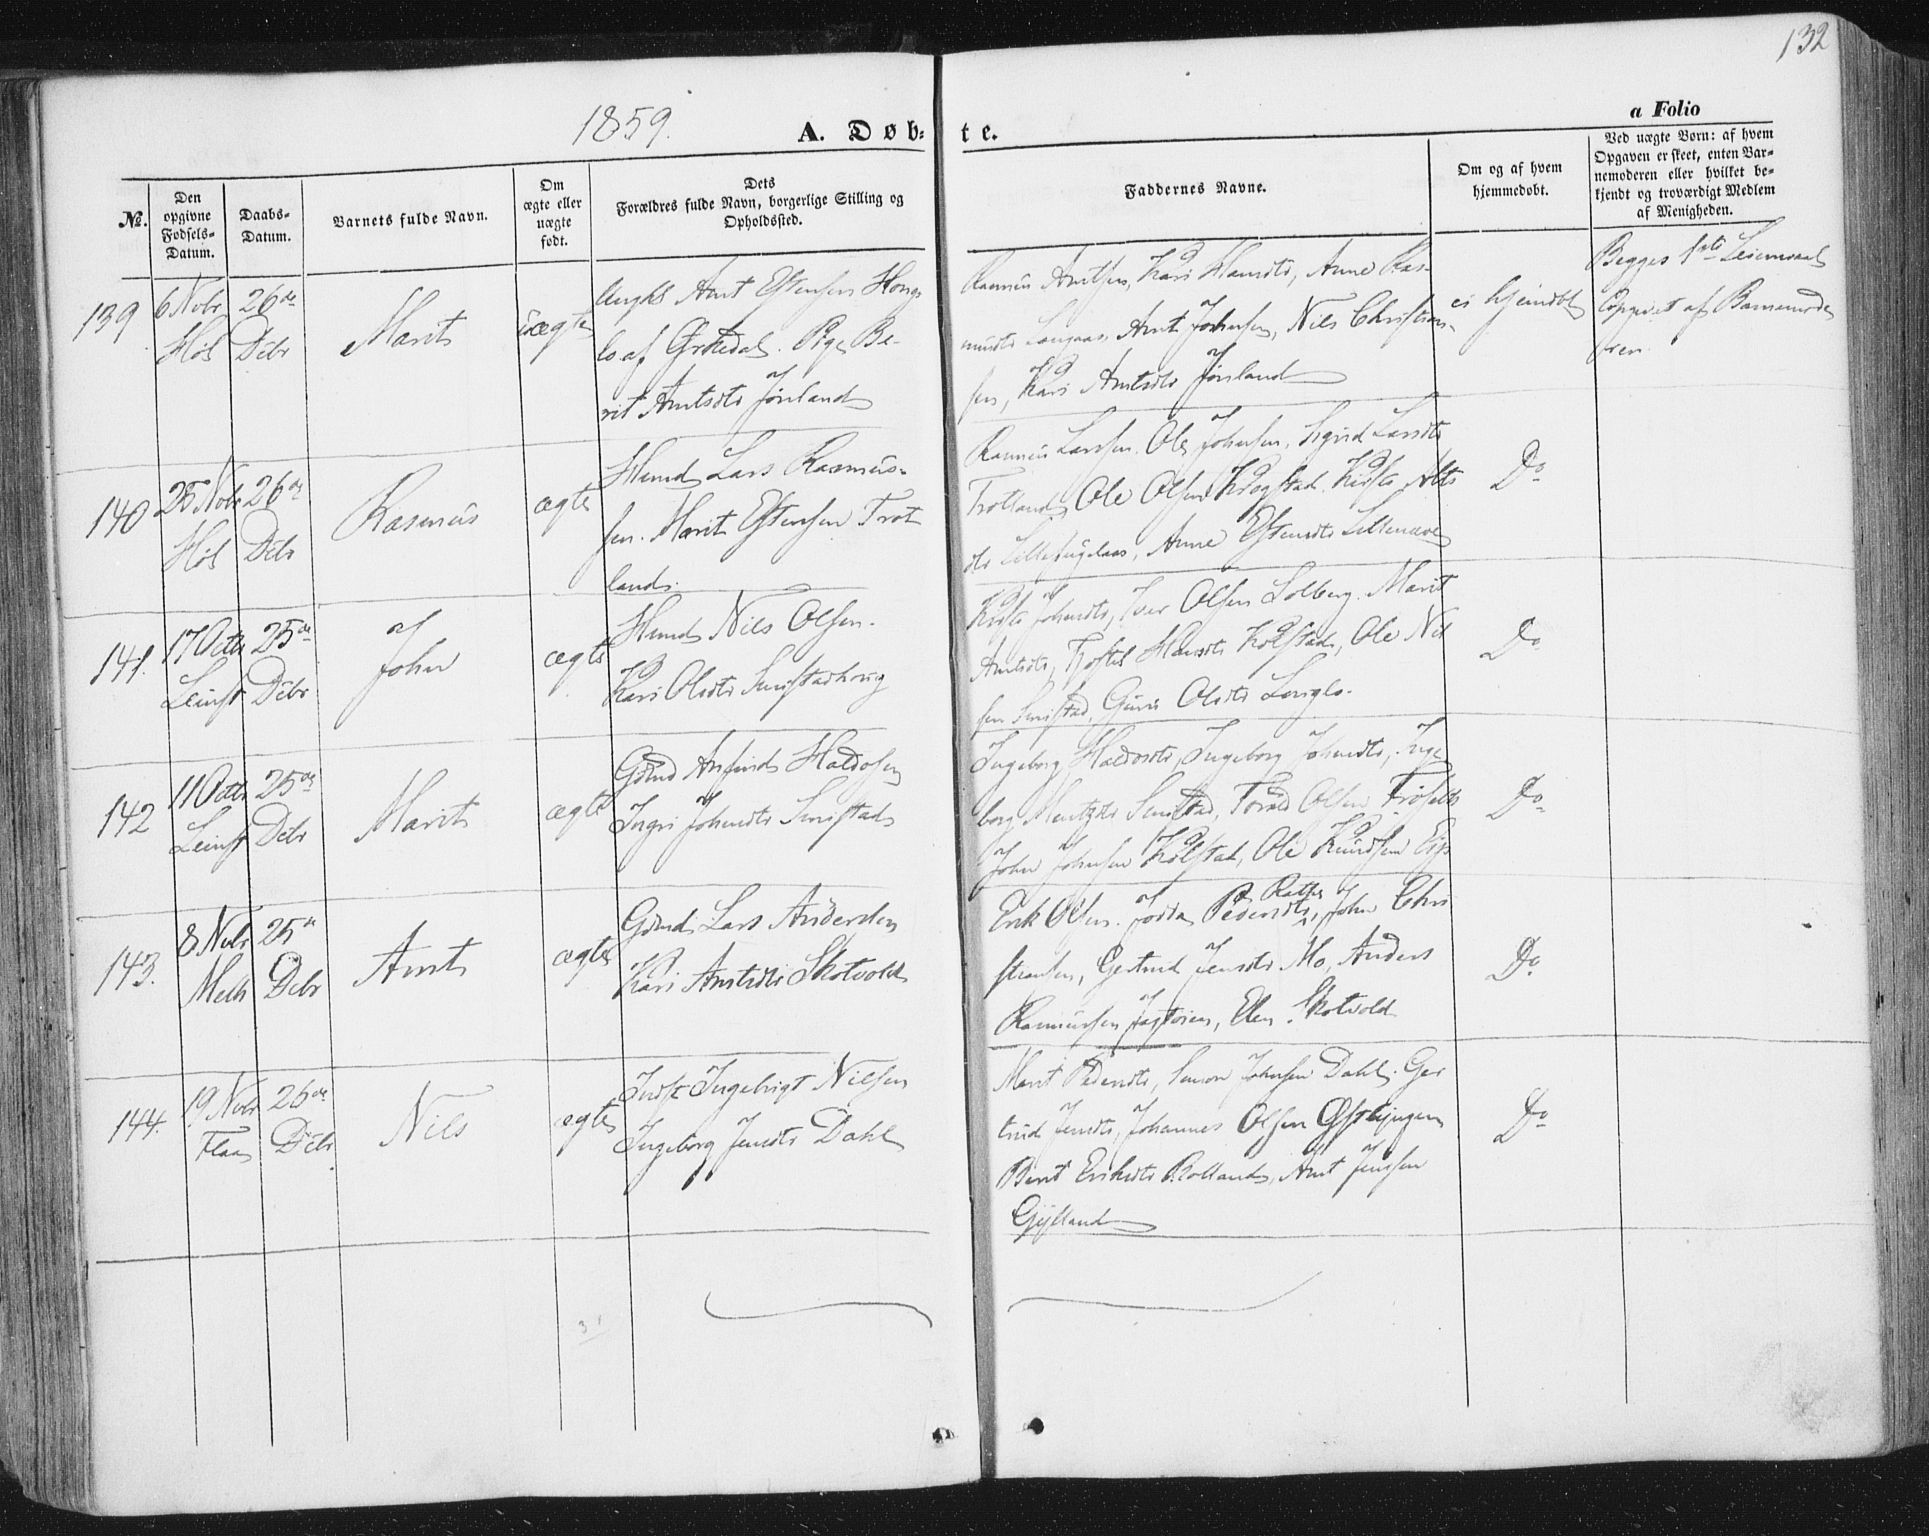 132
1859.
A. Døb-
te.
a Folio
No.
Den opgivne Fødsels-Datum.
Daabs-Datum.
Barnets fulde Navn.
Om ægte eller uægte født.
Dets Forældres fulde Navn, borgerlige Stilling og Opholdssted.
Faddernes Navne.
Om og af hvem hjemmedøbt.
Ved uægte Børn: af hvem Opgaven er skeet, enten Barnemoderen eller hvilket bekjendt og troværdigt Medlem af Menigheden.
139
6 Nobr
Høl
26de
Debr
Marit
uægte
Ungkl Arnt Estensen Hongs
lo af Ørkedal. Pige Be-
rit Arntsdtr Jonland
Rasmus Arntsen, Kari Hansdtr, Anne Ras-
musdtr Langaas, Arnt Johnsen, Nils Christian-
sen, Kari Arntsdtr Jonland
ei hjemdbt
Begges 1ste Leiermaal
Opgivet af Barnemode
ren.
140
25 Nobr
Høl
26de
Debr
Rasmus
ægte
Husmd Lars Rasmus-
sen. Marit Estensen Trot
land.
Rasmus Larssen. Ole Johnsen, Sigrid Larsdtr
Trotland, Ole Olsen Krogstad.
Anne Estensdtr
Do
141.
17 Octbr
Leinst
25de
Debr
John
ægte
Husmd Nils Olsen.
Kari Olsdtr
Johnsdtr, Iver Olsen Solberg. Marit
Arntsdtr, Hansdtr Kolstad, Ole Nil
sen Guru Olsdtr
Do
142
11 Octbr
Leinst
25de
Debr
Marit
ægte
Gdmd Anfind Haldosen
Ingri Johnsdtr
Ingeborg Haldosdtr, Ingeborg Johnsdtr, Inge
borg Olsen
John Johnsen Kolstad, Ole Knudsen
Do
143.
8 Nobr
Melh
25de
Debr
Arnt
ægte
Gdmd. Lars Andersen
Kari Arntsdtr Skotvold
Erik Olsen. Pedersdtr, John Chri
stensen, Gertrud Jensdtr Mo, Anders
Rasmussen Elen Skotvold
Do
144.
19 Nobr
Flaa
26de
Debr
Nils
ægte
Indst Ingebrigt Nilsen
Ingeborg Jensdtr Dahl
Marit Pedersdtr, Simon Johnsen Dahl, Ger
trud Jensdtr, Johannes Olsen
Berit Eriksdtr Rolland, Arnt Jensen
Gylland
Do